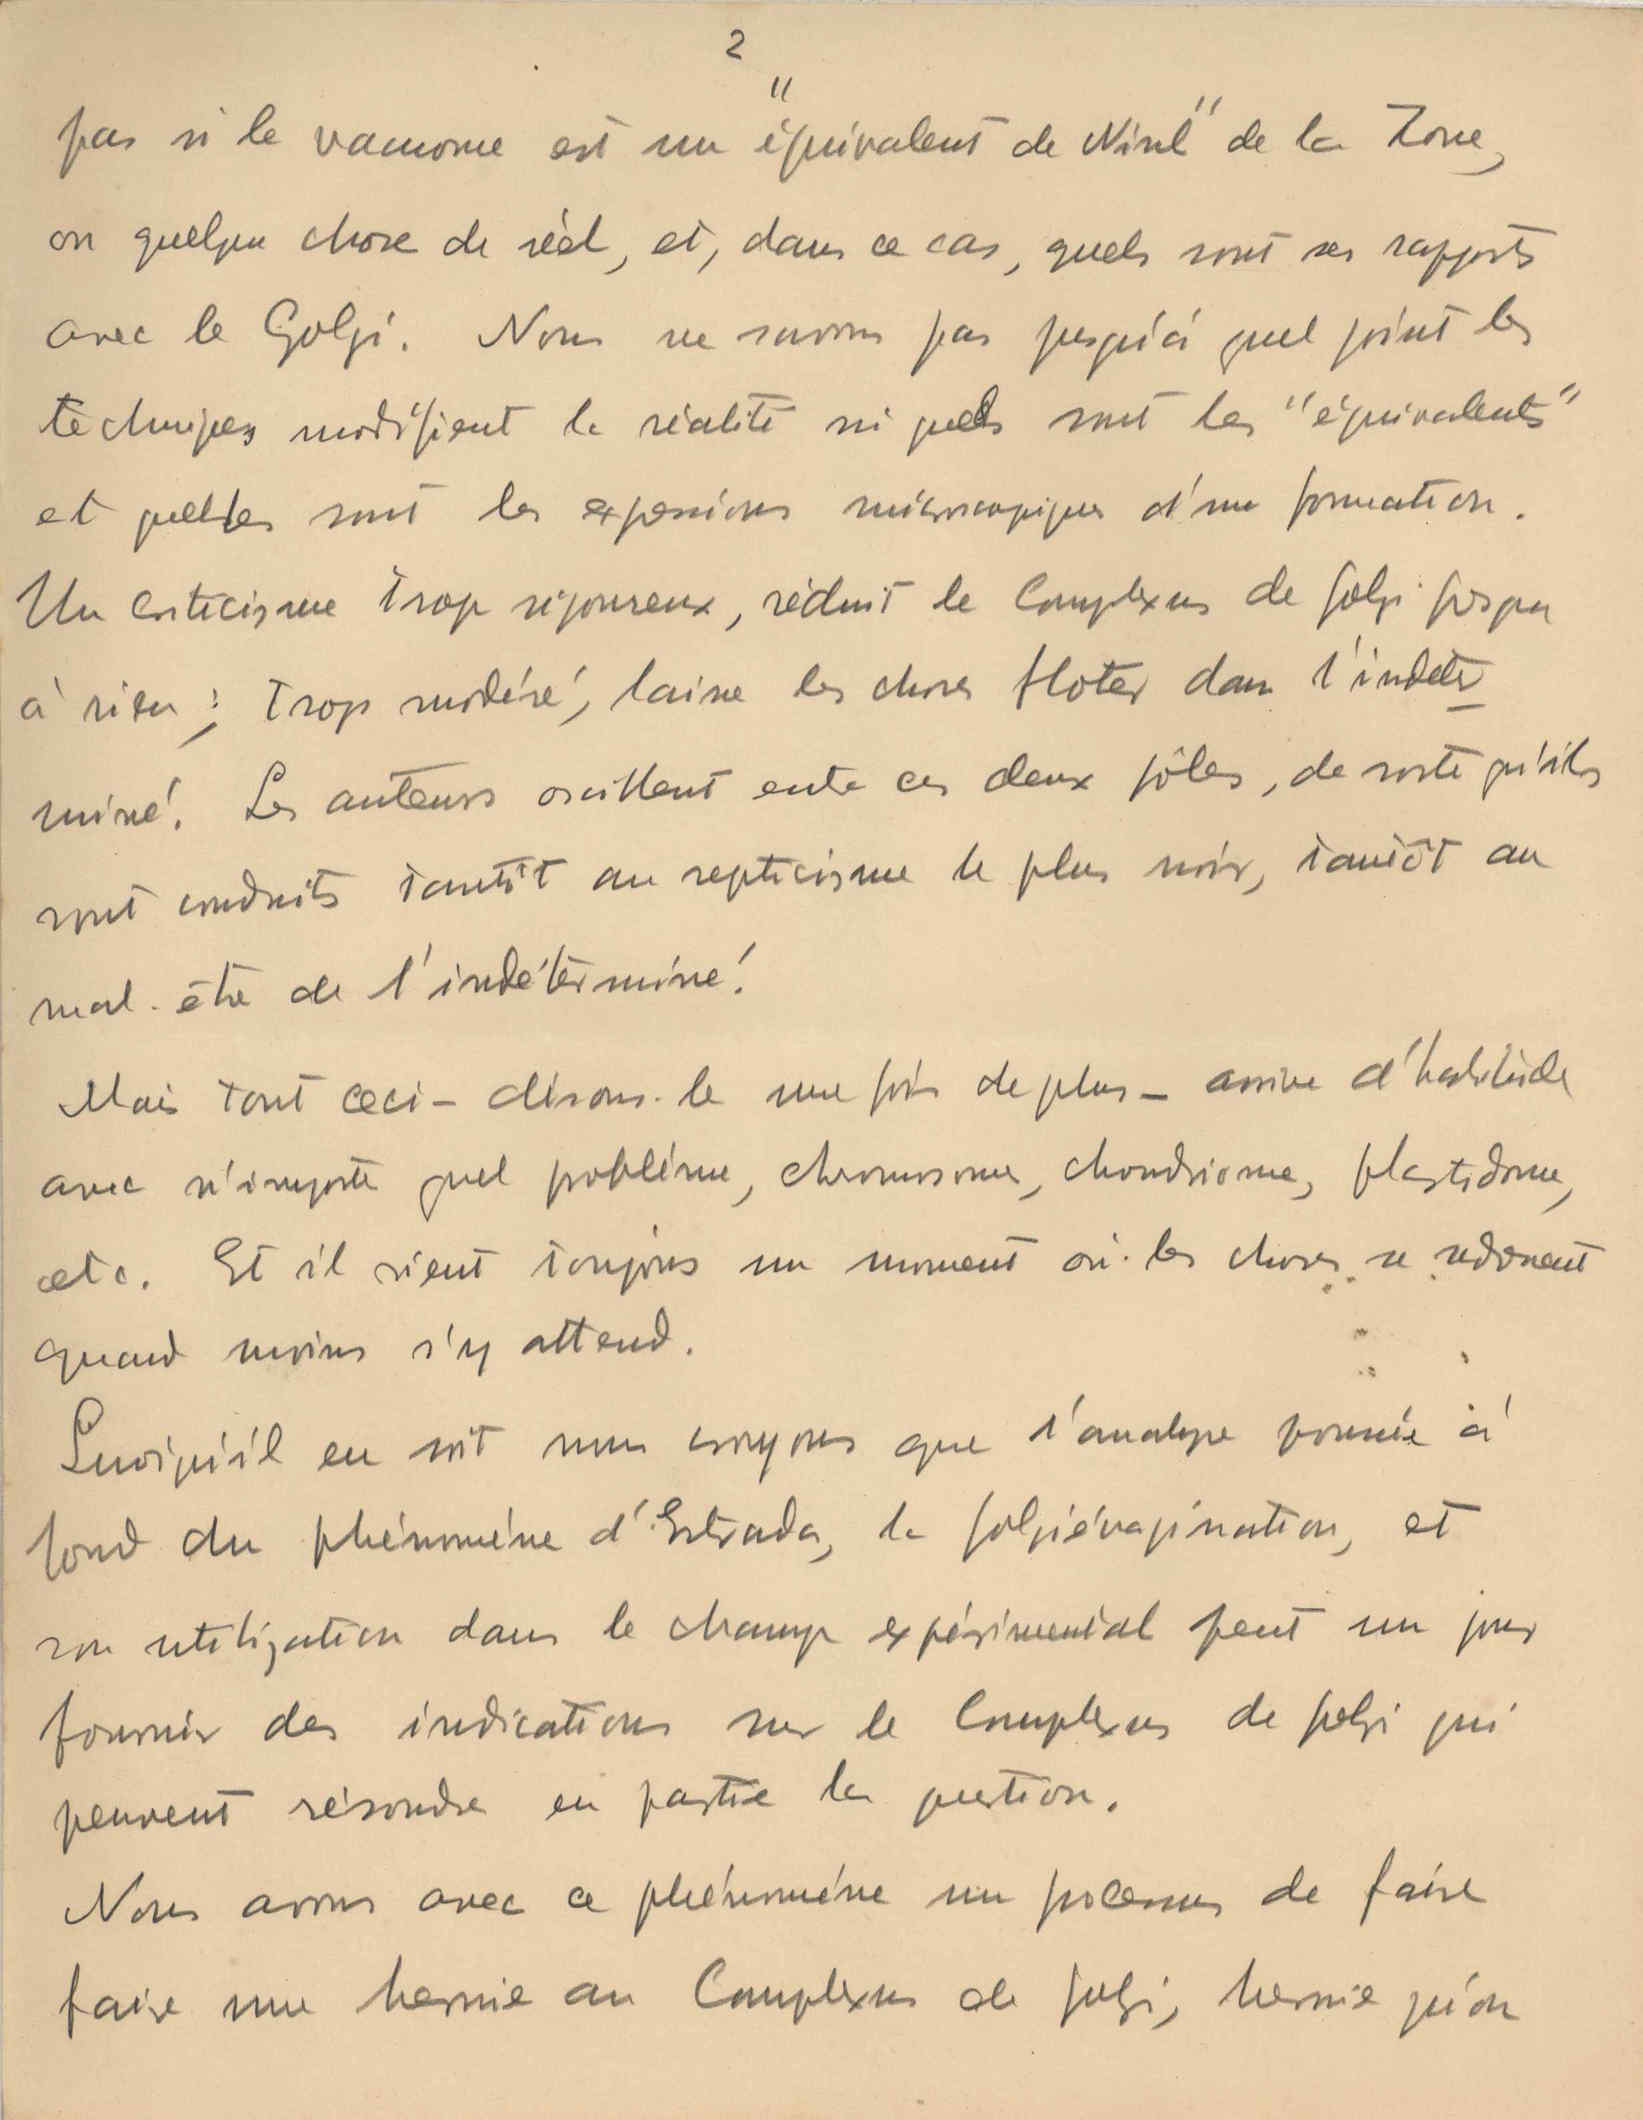 2
pas si le vacuome est un "équivalent de Nissl" de la Zone,
ou quelque chose de réel, et, dans ce cas, quels sont ses rapports
avec le Golgi. Nous ne savons pas jusqu'à quel point les
techniques modifient la réalité ni quels sont les "équivalents"
et quelles sont les expressions microscopiques d'une formation.
Un criticisme trop rigoureux, réduit le Complexus de Golgi jusque
à rien; trop modéré, laisse les choses floter dans l'indeter
miné. Les auteurs oscillent entre ces deux pôles, de sorte qu'ils
sont conduits tantôt au scepticisme le plus noir, tantôt au
mal-être de l'indéterminé.
Mais tout ceci - disons-le une fois de plus - arrive d'habitude
avec n'importe quel problème, chromosome, chondriome, plastidome,
etc. Et il vient toujours un moment où les choses se
quand moins s'y attend.
Quoiqu'il en soit nous croyons que l'analyse poussée à
fond du phénomène d'Estrada, la golgiévagination, et
son utilization dans le champ expérimental peut un jour
fournir des indications sur le Complexus de Golgi qui
peuvent résoudre en partie la question.
Nous avons avec ce phénomène un processus de faire
faire une hernie au Complexus de Golgi, hernie qu'on